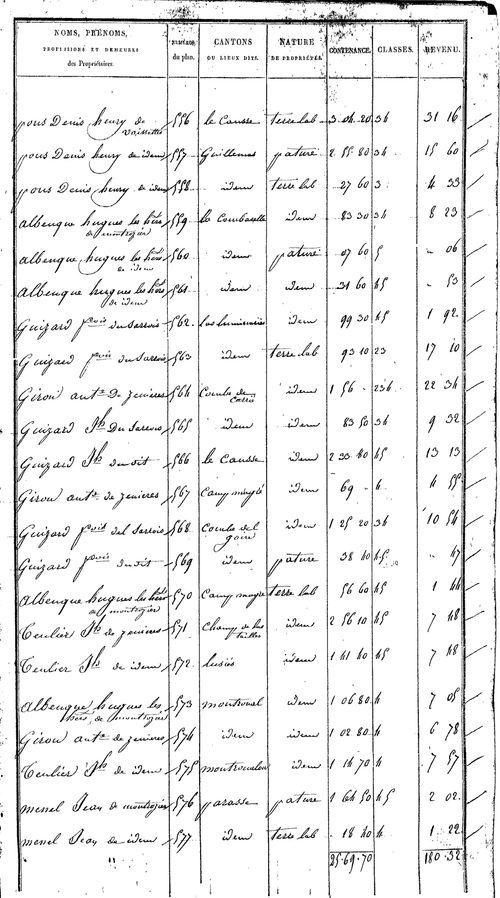 NOMS, PRÉNOMS, PROFESSIONS ET DEMEURES des Propriétaires. NUMÉROS du plan. CANTONS OU LIEUX DITS. NATURE DE PROPRIÉTÉS. CONTENANCE. CLASSES. REVENU.
pous Denis henry de vaissettes 556 le Causse terre lab 3 04 20 34 31 16
pous Denis henry de idem 557 Guillemas pature 2 55 80 34 15 60
pous Denis henry de idem 558 idem terre lab 27 60 3 4 33
albenque hugues les hérs de montrozier 559 le idem 83 30 34 8 23
albenque hugues les hérs de idem 560 idem pature 07 60 5 " 06
albenque hugues les hérs de idem 561 idem idem 31 60 45 " 53
Guizard fcois du 562 idem 99 30 45 1 92
Guizard fcois du 563 idem terre lab 93 10 23 17 10
Girou ante De zenieres 564 Combe idem 1 56 " 234 22 34
Guizard Jh Du 565 idem idem 83 50 34 9 32
Guizard Jh du dit 566 le Causse idem 2 33 80 45 13 13
Girou ante de zenieres 567 Camp idem 69 " 6 4 55
Guizard fcois del 568 Combe del idem 1 25 20 34 10 54
Guizard fcois du dit 569 idem pature 38 40 45 " 47
albenque hugues les hérs de montrozier 570 Camp terre lab 56 60 45 1 44
Teulier Jh de zenieres 571 Champ de las idem 2 56 10 45 7 48
Teulier Jh de idem 572 idem 1 41 40 45 7 48
albenque hugues les hérs de montrozier 573 idem 1 06 80 4 7 05
Girou ante de zenieres 574 idem idem 1 02 80 4 6 78
Teulier Jh de idem 575 idem 1 14 70 4 7 57
menel Jean de montrozier 576 parasse pature 1 64 50 45 2 02
menel Jean de idem 577 idem terre lab " 18 40 4 1 22
25 69 70 180 32